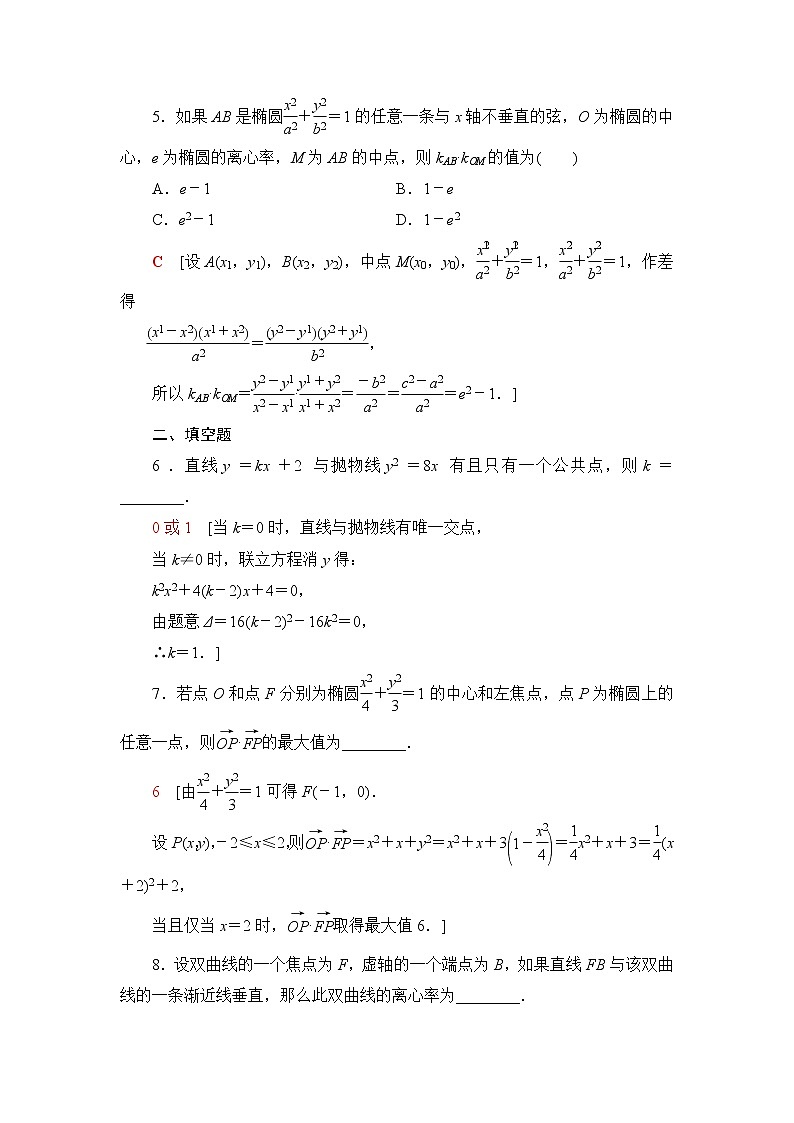 5．如果 AB 是椭圆x²/a²＋y²/b²＝1 的任意一条与 x 轴不垂直的弦，O 为椭圆的中
心，e 为椭圆的离心率，M 为 AB 的中点，则 kAB·kOM 的值为(　　)
A．e－1　　B．1－e
C．e²－1　　D．1－e²
C　[设 A(x₁，y₁)，B(x₂，y₂)，中点 M(x₀，y₀)，x₁²/a²＋y₁²/b²＝1，x₂²/a²＋y₂²/b²＝1，作差
得
(x1－x2)(x1＋x2)/a2＝(y2－y1)(y2＋y1)/b2，
所以 kAB·kOM＝(y2－y1)/(x2－x1)·(y1＋y2)/(x1＋x2)＝－b2/a2＝(c2－a2)/a2＝e²－1．]
二、填空题
6．直线 y＝kx＋2 与抛物线 y²＝8x 有且只有一个公共点，则 k＝
________．
0 或 1　[当 k＝0 时，直线与抛物线有唯一交点，
当 k≠0 时，联立方程消 y 得：
k²x²＋4(k－2)x＋4＝0，
由题意 Δ＝16(k－2)²－16k²＝0，
∴k＝1．]
7．若点 O 和点 F 分别为椭圆x²/4＋y²/3＝1 的中心和左焦点，点 P 为椭圆上的
任意一点，则→OP·→FP的最大值为________．
6　[由x²/4＋y²/3＝1 可得 F(－1，0)．
设 P(x，y)，－2≤x≤2，则→OP·→FP＝x²＋x＋y²＝x²＋x＋3(1－x²/4)＝1/4x²＋x＋3＝1/4(x
＋2)²＋2，
当且仅当 x＝2 时，→OP·→FP取得最大值 6．]
8．设双曲线的一个焦点为 F，虚轴的一个端点为 B，如果直线 FB 与该双曲
线的一条渐近线垂直，那么此双曲线的离心率为________．